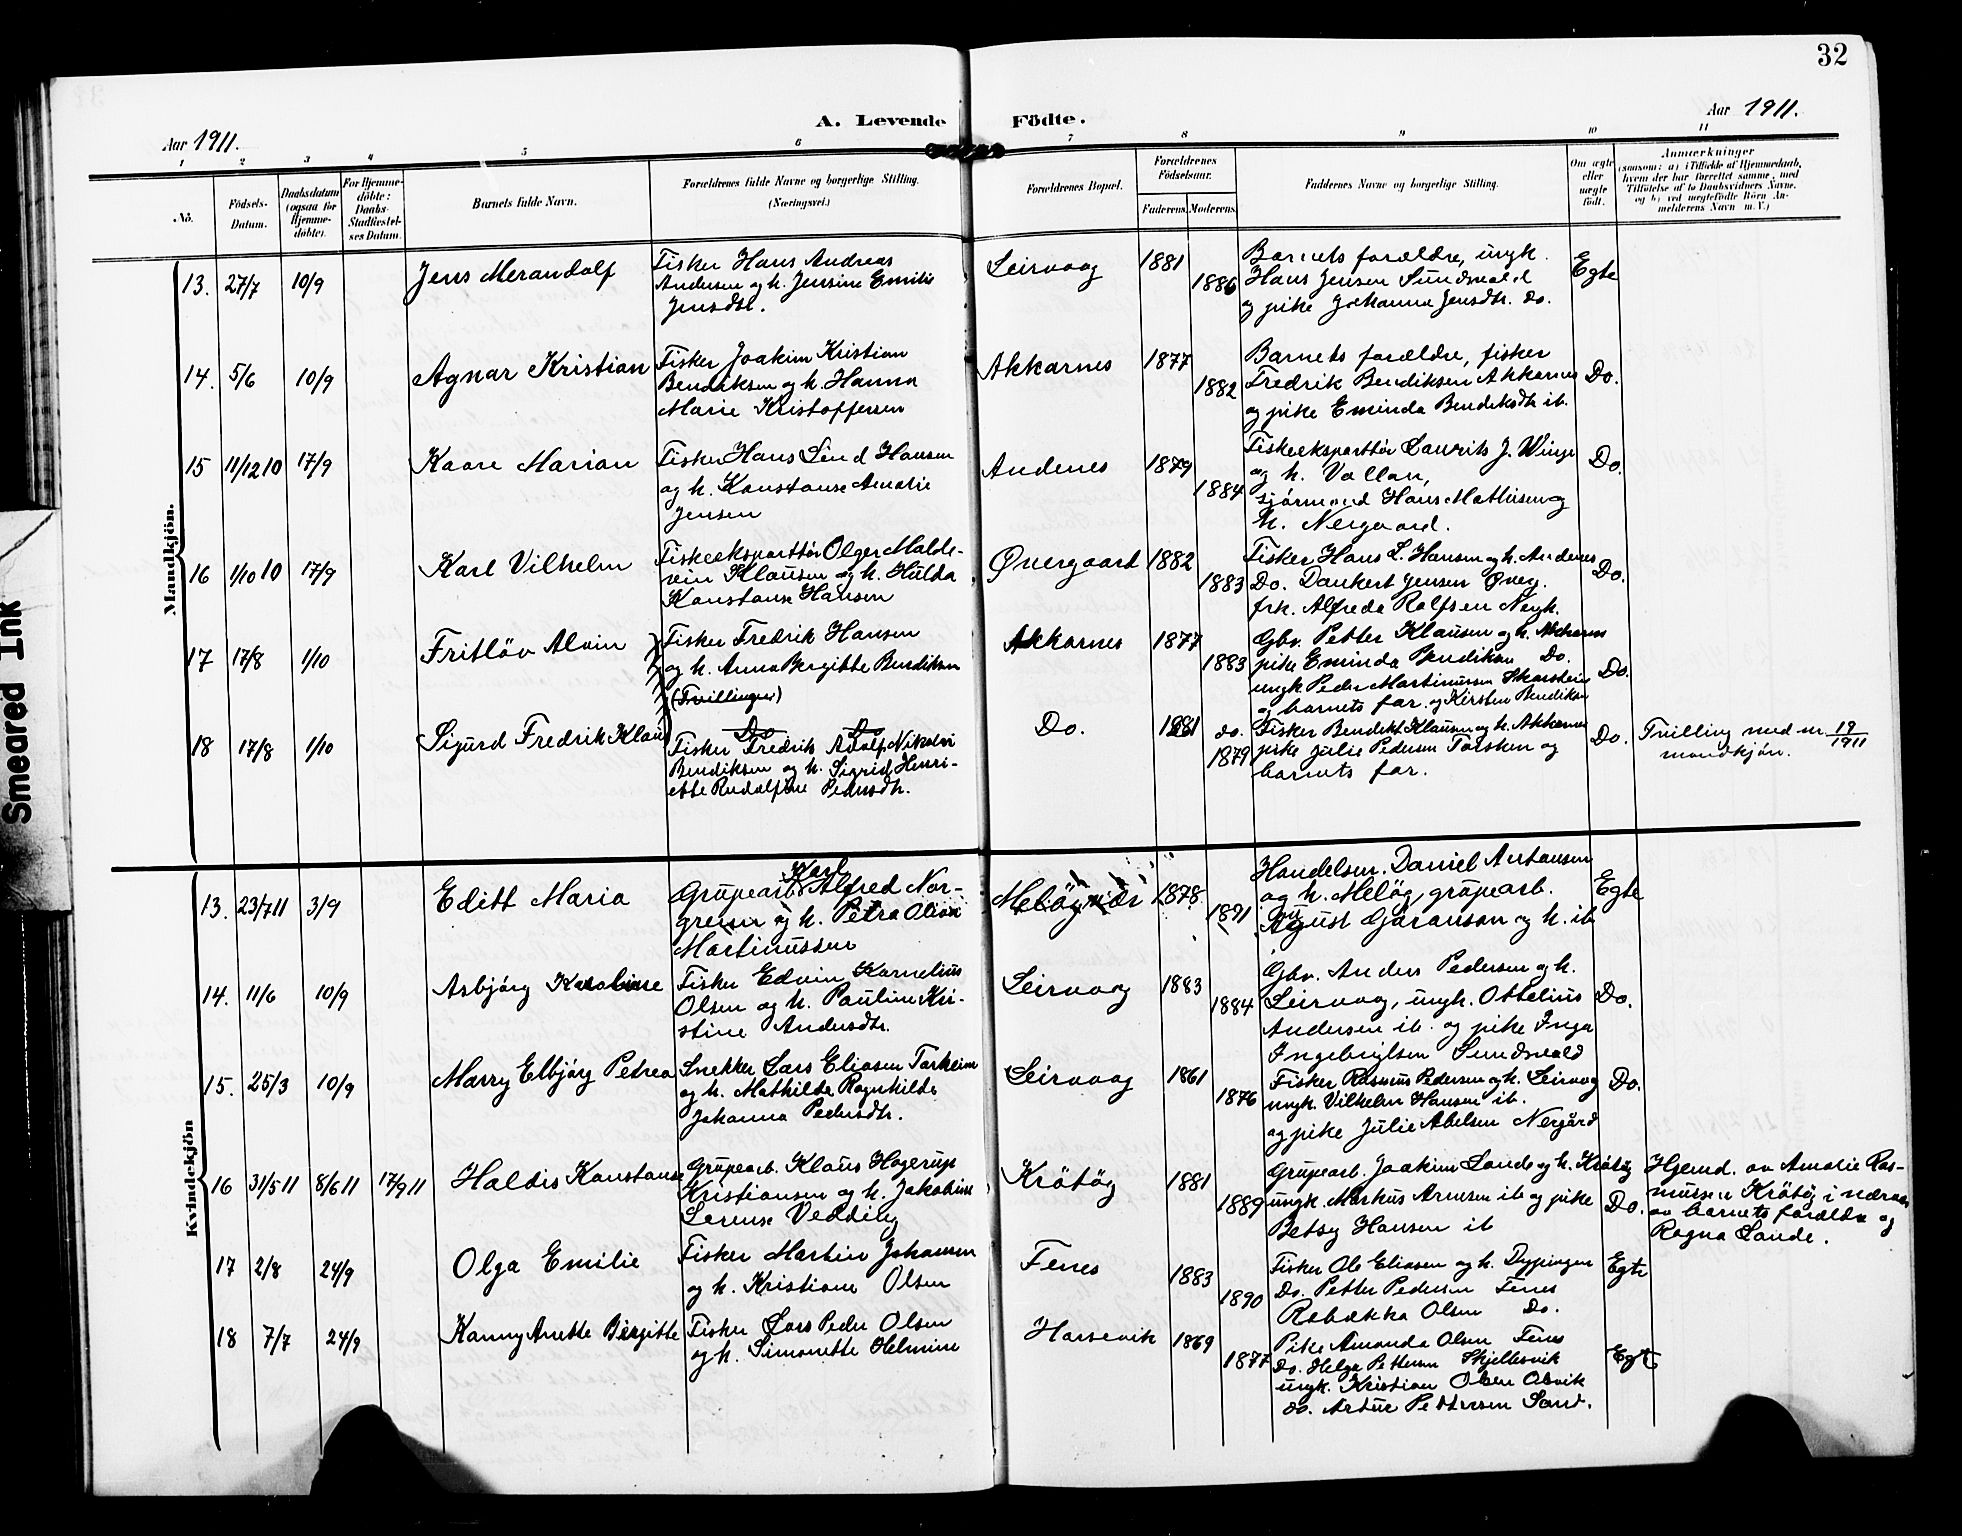 32
A. Levende Födte.
Aar 1911.
Aar 1911.
1 2 3 4 5 6 7 8 9 10 11
No.
Födsels-
Datum.
Daabsdatum
(ogsaa for
Hjemme-
döbte).
For Hjemme-
döbte:
Daabs-
Stadfæstel-
ses Datum.
Barnets fulde Navn.
Forældrenes fulde Navne og borgerlige Stilling.
(Næringsvei.)
Forældrenes Bopæl.
Forældrenes
Födselsaar.
Faderens.
Moderens.
Faddernes Navne og borgerlige Stilling.
Om ægte
eller
uægte
födt.
Anmærkninger
(saasom: a) i Tilfælde af Hjemmedaab,
hvem der har forrettet samme, med
Tilföielse af to Daabsvidners Navne,
og b) ved uægtefödte Börn An-
melderens Navn m. V.)
Mandkjön.
13. 27/7 10/9
Jens Merandolf
Fisker Hans Andreas
Andersen og h. Jensine Emilie
Jensdtr.
Leirvaag
1881
1886
Barnets forældre, ungk.
Hans Jensen Sundsvold
og pike Johanna Jensdtr. do.
Egte
14. 5/6 10/9
Agnar Kristian
Fisker Joakim Kristian
Bendiksen og h. Hanna
Marie Kristoffersen
Akkarnes
1877
1882
Barnets forældre, fisker
Fredrik Bendiksen Akkarnes
og pike Eminda Bendiksdtr ib.
Do.
15 11/12 10 17/9
Kaare Marian
Fisker Hans Lind Hansen
og h. Konstanse Amalie
Jensen
Andenes
1879
1884
Fiskeeksportør Laurits J. Winge
og h. Vollan,
sjømand Hans Mathisen og
h. Nergaard.
Do.
16 1/10 10 17/9
Karl Vilhelm
Fiskeeksportør Olger Malde-
vin Klausen og h. Hulda
Konstanse Hansen
Øvergaard
1882
1883
Fisker Hans L. Hansen og h. Andenes
Do. Dankert Jensen Øverg.
frk. Alfreda Rolfsen Nergh.
Do.
17 17/8 1/10
Fritløv Alvin
Fisker Fredrik Hansen
og h. Anna Bergitte Bendiksen
(Tvillinger)
Akkarnes
1877
1883
Gbr. Petter Klausen og h. Akkarnes
pike Eminda Bendiksen Do.
ungk Peder Martinussen Skarstein
og barnets far. og Kirsten Bendiksen
Do.
18 17/8 1/10
Sigurd Fredrik Klaus
Do Do
Fisker Fredrik Adolf Nikolai
Bendiksen og h. Sigrid Henri-
ette Rudolfine Pedersdtr.
Do.
1881
do.
1879
Fisker Bendikt Klausen og h. Akkarnes
pike Julie Pedersen Torsken og
barnets far.
Do.
Tvilling med nr 19/1911
mandkjøn.
Kvindekjön
13. 23/7 11 3/9
Editt Maria
Karl
Grubearb. Alfred Nor-
green og h. Petra Olian
Martinussen
Meløyvær
1878
1891
Handelsm. Daniel Antonsen
og h. Meløy, grubearb.
August Göranson og h. ib
Egte
14. 11/6 10/9
Asbjørg Karoline
Fisker Edvin Kornelius
Olsen og h. Pauline Kri-
stine Andersdtr.
Leirvaag
1883
1884
Gbr. Anders Pedersen og h.
Leirvaag, ungk. Ottelius
Andersen ib. og pike Inga
Ingebrigtsen Sundsvold
Do.
15. 25/3 10/9
Marry Elbjørg Petrea
Snekker Lars Eliasen Torheim
og h. Mathilde Ragnhilde
Johanna Pedersdtr.
Leirvaag
1861
1876
Fisker Rasmus Pedersen og h. Leirvaag
ungk. Vilhelm Hansen ib.
og pike Julie Abelsen Nergård
Do.
16 31/5 11 8/6 11 17/9 11
Haldis Konstanse
Grubearb. Klaus Hagerup
Kristiansen og h. Jakobine
Lerense Vedding
Krøtøy
1881
1889
Grubearb. Joakim Lande og h. Krøtøy
ungk. Markus Arnesen ib og pike
Betsy Hansen ib
Do.
Hjemd. av Amalie Ras-
mussen Krøtøy i nærvær
av barnets forældre og
Ragna Lande.
17 2/8 24/9
Olga Emilie
Fisker Martin Johansen
og h. Kristiane Olsen
Fenes
1883
1890
Fisker Ole Eliasen og h. Dypingen
Do. Petter Pedersen Fenes
Rebækka Olsen Do.
Egte
18 7/7 24/9
Kanny Anette Birgitte
Fisker Lars Peder Olsen
og h. Simonette Helmine
Harsevik
1869
1877
Pike Amanda Olsen Fenes
Do. Helga Pettersen Skjellesvik
ungk. Kristian Olsen Alsvik
do. Artur Pettersen Sand.
Egte
Smeared Ink